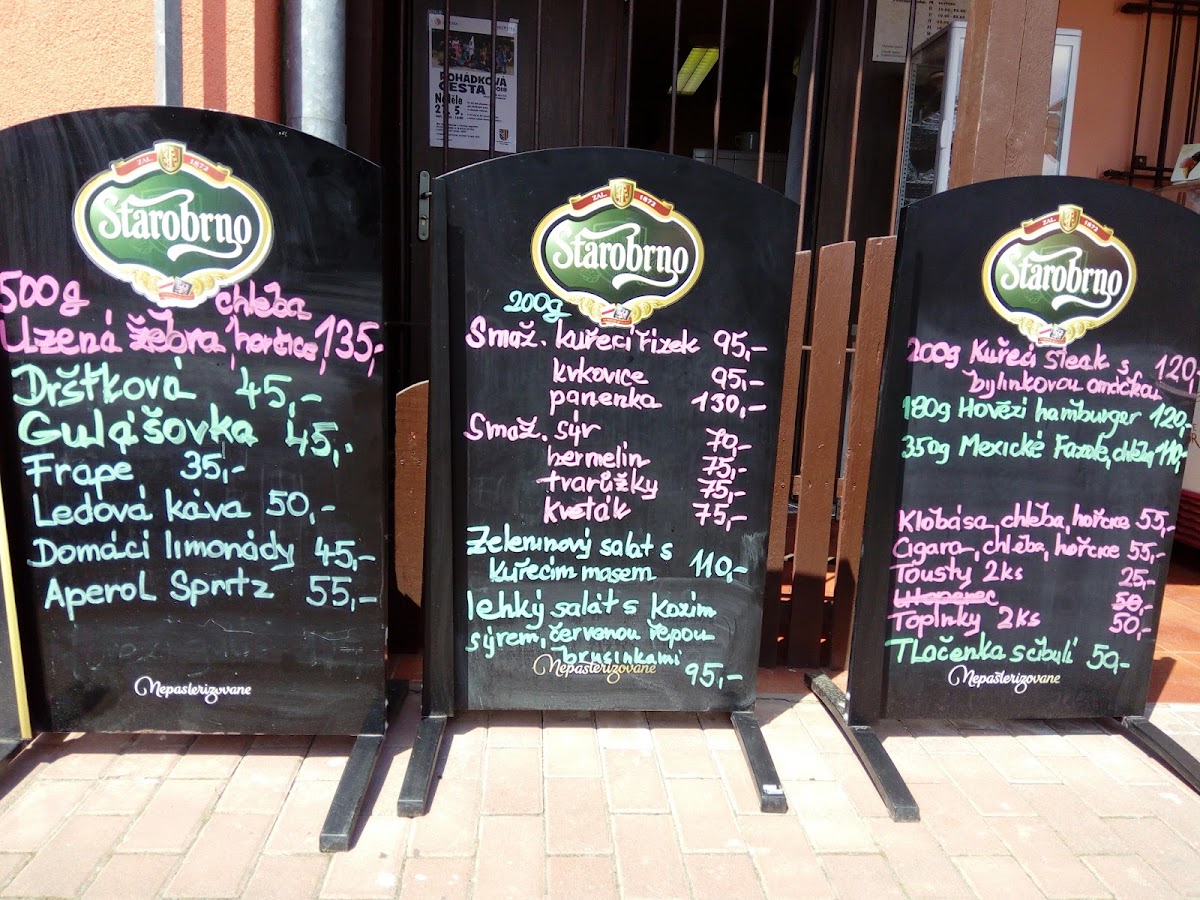 POHÁDKOVÁ
CESTA
Neděle
27.5.
ZAL. 1872
Starobrno
500g chleba
Uzená žebra, hořčice, 135,-
Drštková 45,-
Gulášovka 45,-
Frape 35,-
Ledová káva 50,-
Domácí limonády 45,-
Aperol Spritz 55,-
Nepasterizovane
ZAL. 1872
Starobrno
200g
Smaž. kuřecí řízek 95,-
krkovice 95,-
panenka 130,-
Smaž. sýr 70,-
hermelín 75,-
tvarůžky 75,-
kveták 75,-
Zeleninový salat s
kuřecím masem 110,-
lehký salát s kozím
sýrem, červenou řepou
brusinkami
Nepasterizovane
95,-
ZAL. 1872
Starobrno
200g Kuřecí steak s 120,-
bylinkovou omáčkou
180g Hovězí hamburger 120,-
350g Mexické Fazole, chleba 110,-
Klobása, chleba, hořčice 55,-
Cigara, chleba, hořčice 55,-
Tousty 2ks 25,-
Utopenec 50,-
Toplnky 2ks 50,-
Tlačenka s cibulí 50,-
Nepasterizovane